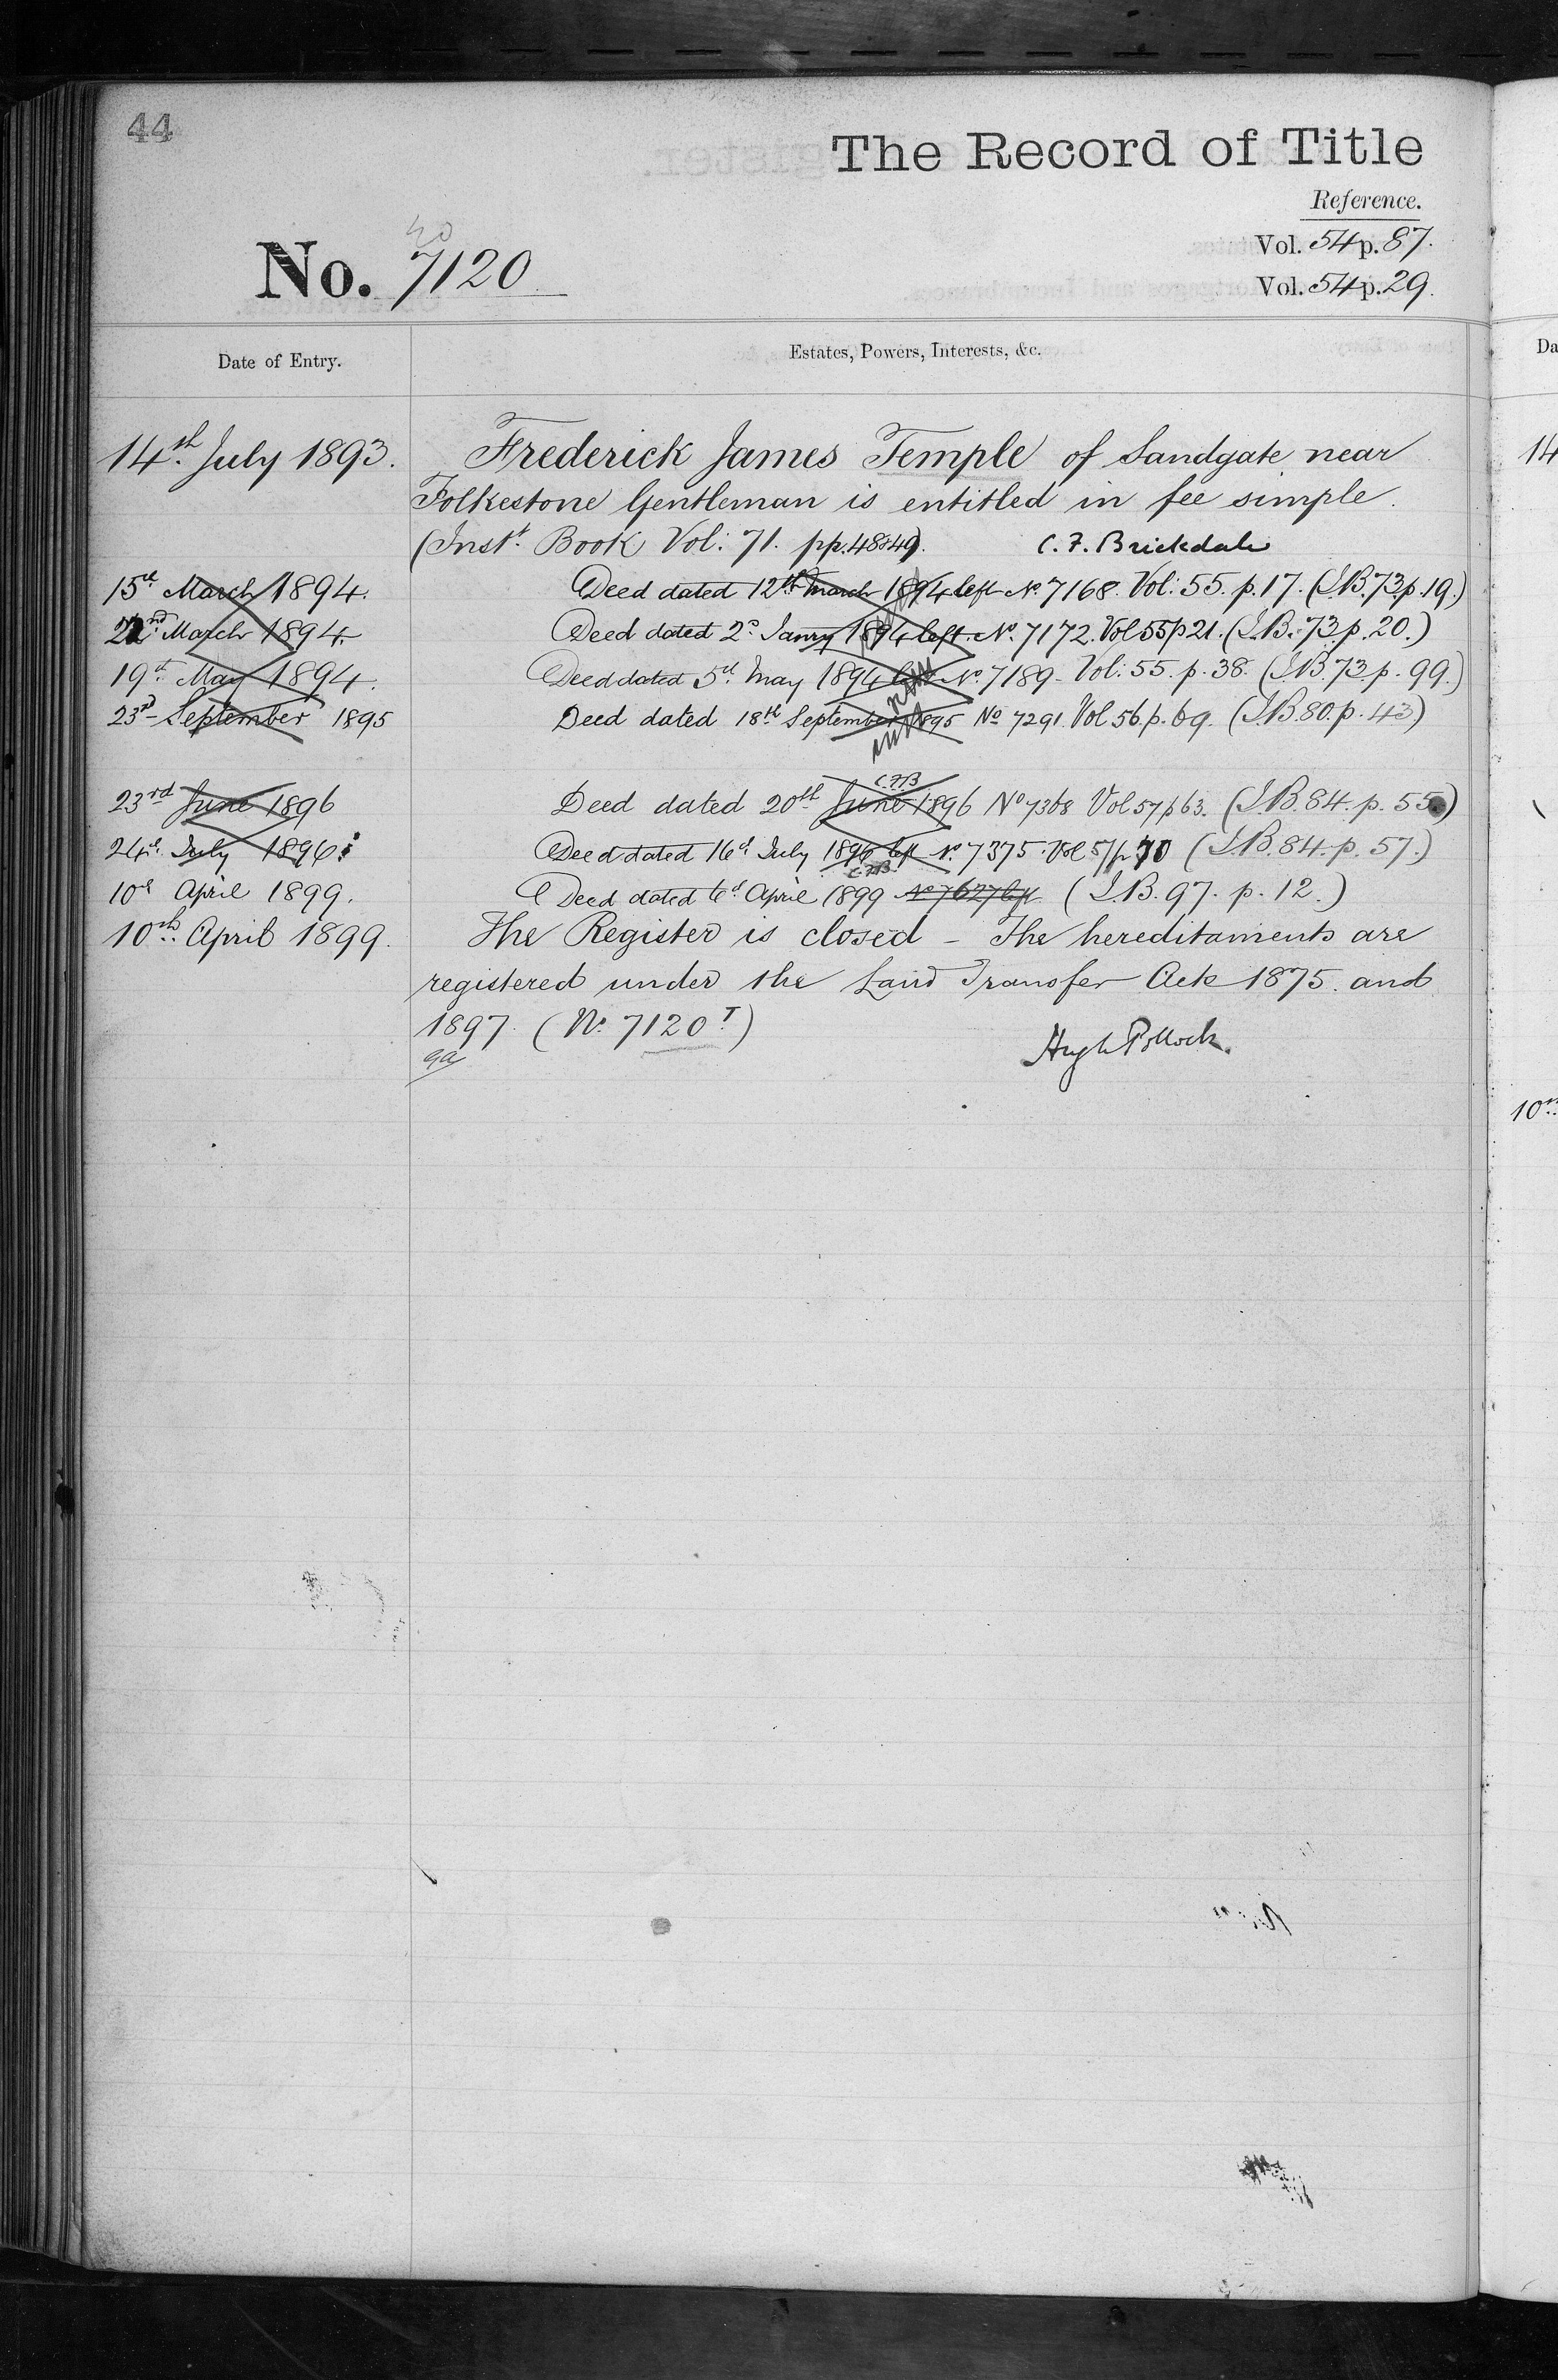 44
The Record of Title
Reference.
No. 7120
Vol. 54 p. 87.
Vol. 54 p. 29.
Date of Entry.
Estates, Powers, Interests, &c.
14th July 1893. Frederick James Temple of Sandgate near
Folkestone Gentleman is entitled in fee simple.
(Inst. Book Vol: 71. pp. 48&49). C. F. Brickdale
15th March 1894. Deed dated 12th March 1894 left No. 7168. Vol: 55. p. 17. (I.B. 73 p. 19.)
22nd March 1894. Deed dated 2d Janry 1894 left. No. 7172. Vol 55 p 21. (I.B. 73. p. 20.)
19th May 1894. Deed dated 5th May 1894 left No. 7189. Vol: 55. p. 38. (I.B. 73 p. 99.)
23rd September 1895 Deed dated 18th September 1895 No 7291. Vol 56. p. 69. (I.B. 80. p. 43)
C.F.B
23rd June 1896 Deed dated 20th June 1896 No 7368 Vol 57 p 63. (I.B. 84. p. 55.)
24th July 1896. Deed dated 16th July 1896 left No. 7375. Vol 57 p 70 (I.B. 84. p. 57.)
C.F.B
10th April 1899. Deed dated 6th April 1899 No 7627 left (I.B. 97. p. 12.)
10th April 1899. The Register is closed - The hereditaments are
registered under the Land Transfer Acts 1875 and
1897. (No. 7120 T.)
Hugh Pollock.
Da
14
10th